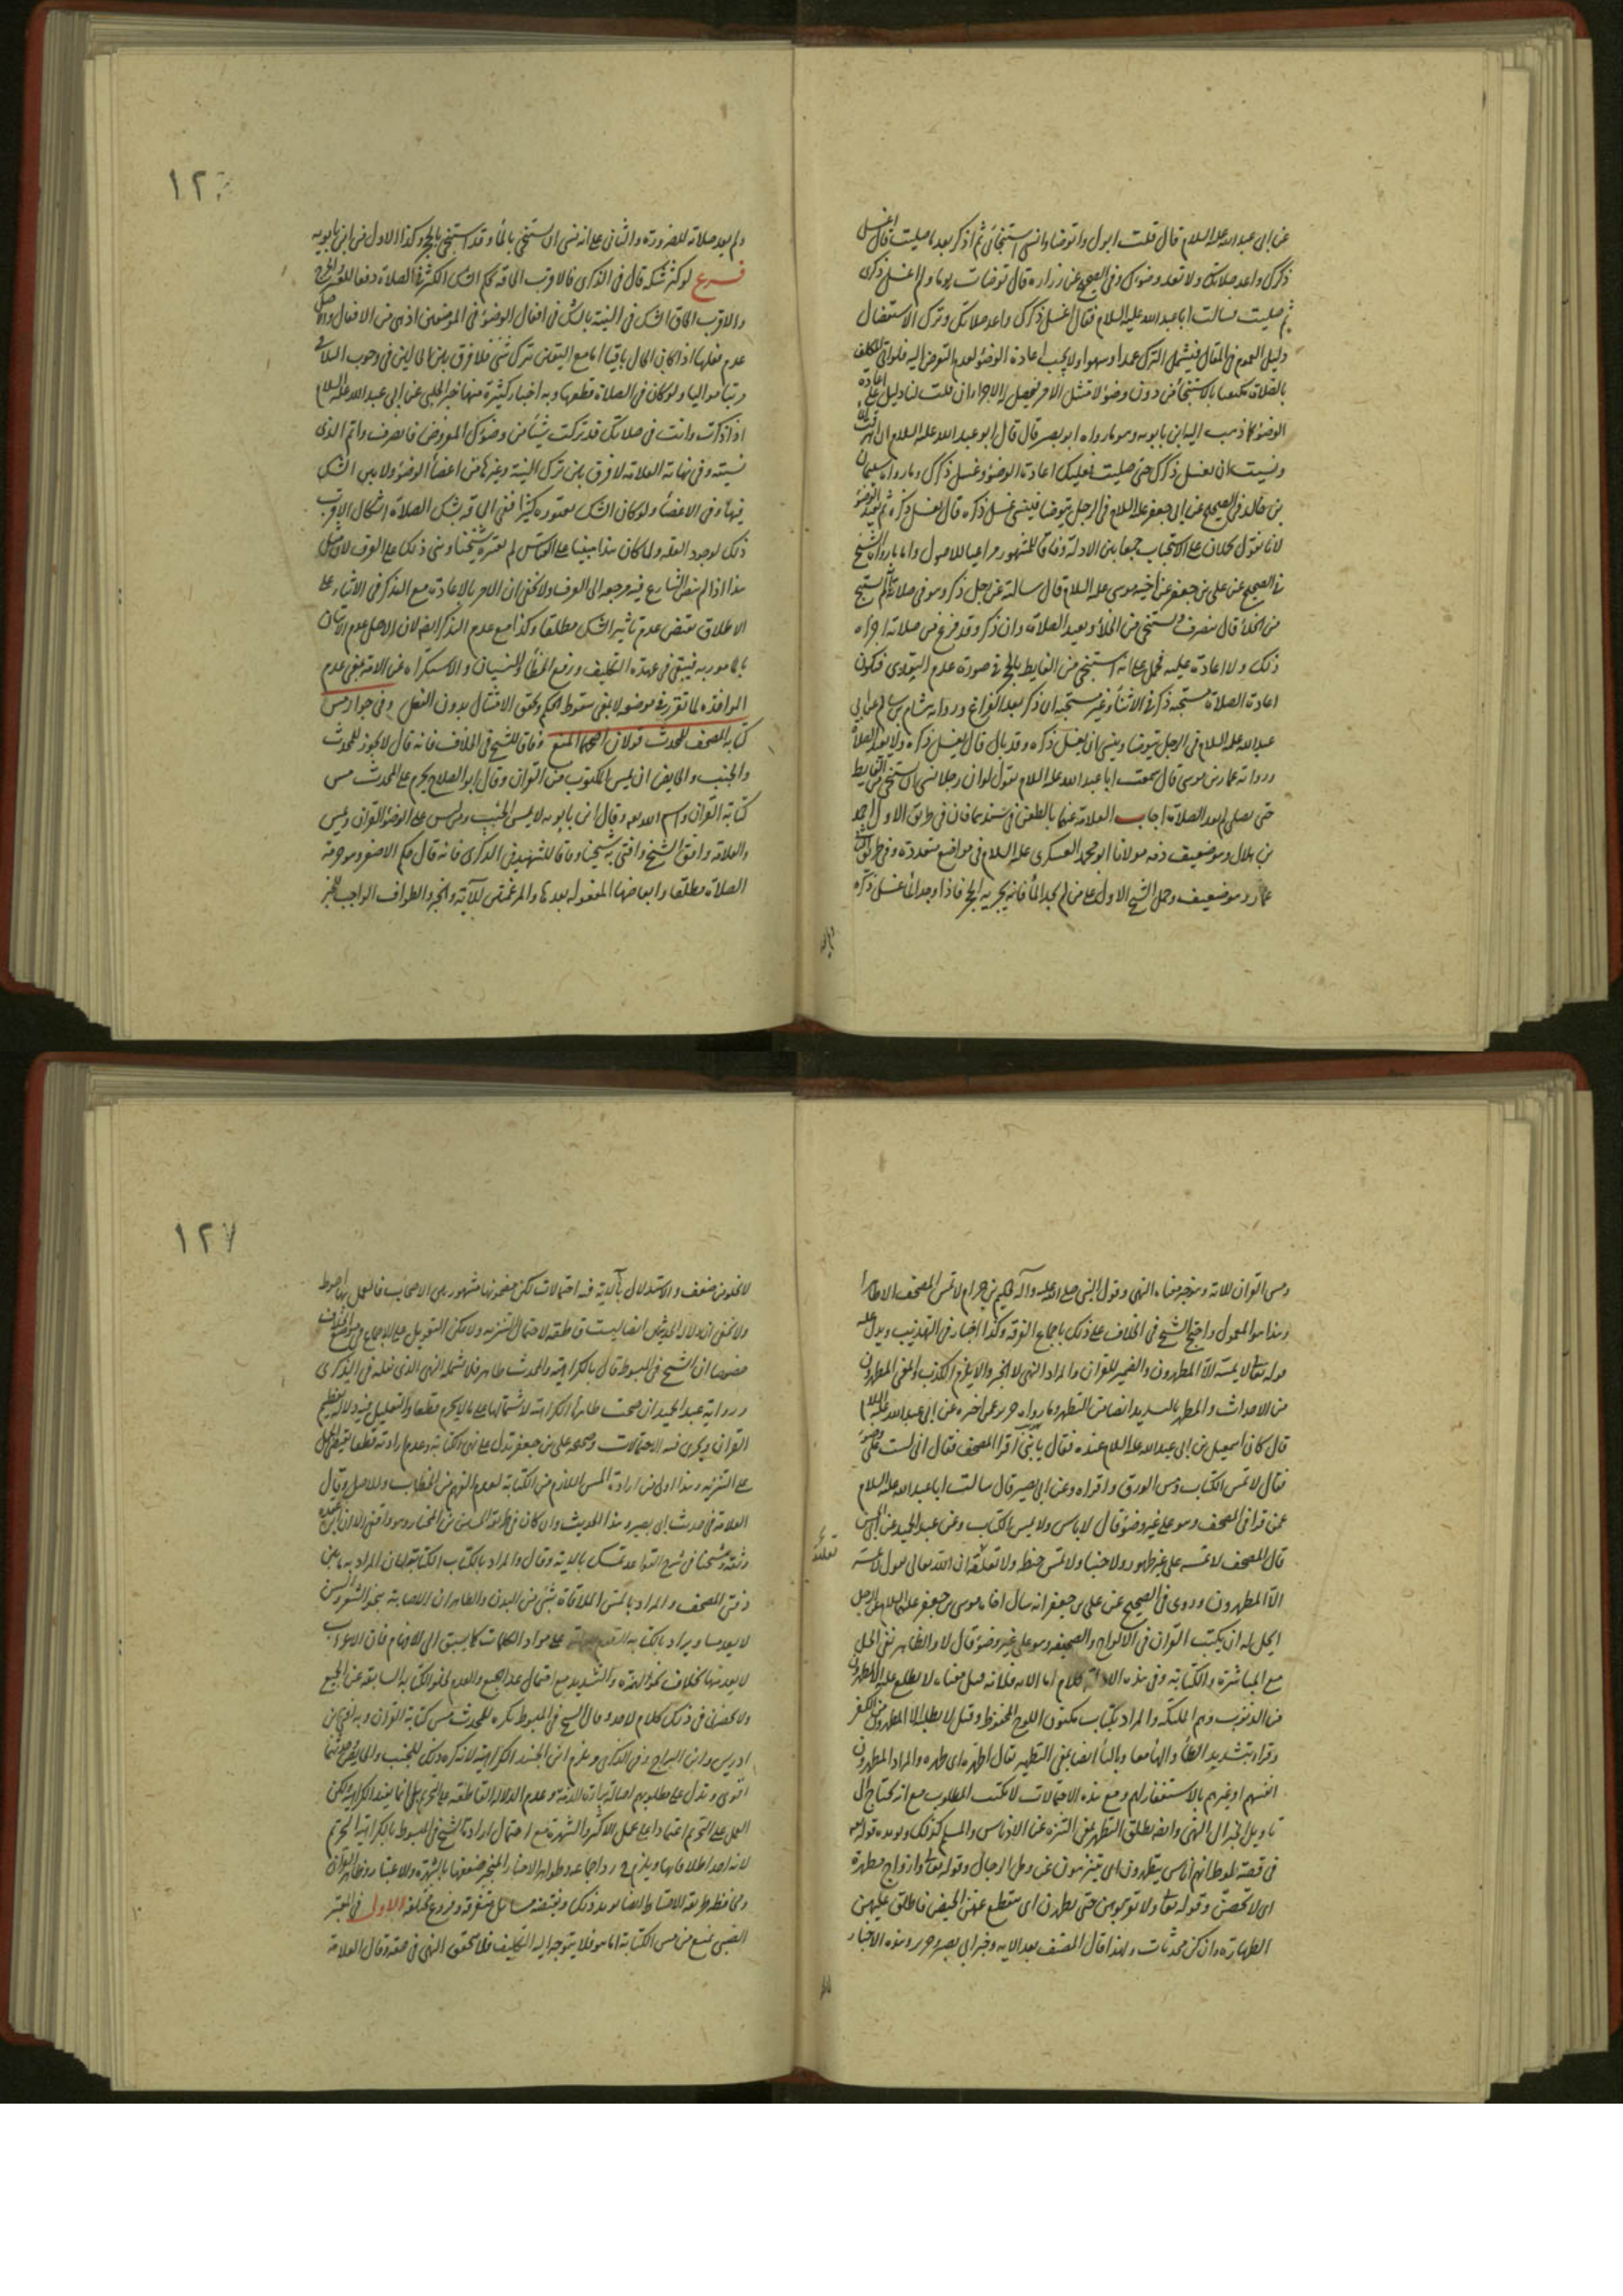 عن ابى عبد الله عليه السلام قال قلت ابول واتوضا وانسى استنجائى ثم اذكر بعد ما صليت قال اغسل
ذكرك واعد صلاتك ولا تعد وضوئك وفى الصحيح عن زرارة قال توضات يوما ولم اغسل ذكرى
ثم صليت فسالت ابا عبد الله عليه السلام فقال اغسل ذكرك واعد صلاتك وترك الاستفصال
دليل العموم فى المقال فيشمل الترك عمدا وسهوا ولا يجب اعادة الوضوء لعدم التعرض اليه فلو اتى المكلف
بالصلاة مكتفيا بالاستنجاء من دون وضوء لامتثل الامر فيحصل الاجزاء ان قلت لنا دليل على اعادة
الوضوء كما ذهب اليه ابن بابويه وهو ما رواه ابو بصير قال قال ابو عبد الله عليه السلام ان اهرقت الماء
ونسيت ان تغسل ذكرك حتى صليت فعليك اعادة الوضوء وغسل ذكرك وما رواه سليمان
بن خالد فى الصحيح عن ابى جعفر عليه السلام فى الرجل يتوضا فينسى غسل ذكره قال يغسل ذكره ثم يعيد الوضوء
لانا نقول يحملان على الاستحباب جمعا بين الادلة وفاقا للمشهور مراعيا للاصول واما ما رواه الشيخ
فى الصحيح عن على بن جعفر عن اخيه موسى عليه السلام قال سالته عن رجل ذكر وهو فى صلاته انه لم يستنج
من الخلاء قال ينصرف ويستنجى من الخلاء ويعيد الصلاة وان ذكر وقد فرغ من صلاته اجزاه
ذلك ولا اعادة عليه فيحمل على انه استنجى من الغايط بالحجر فى صورة عدم التعدى فيكون
اعادة الصلاة مستحبة ان ذكر فى الاثناء وغير مستحبة ان ذكر بعد الفراغ ورواية هشام بن سالم عن ابى
عبد الله عليه السلام فى الرجل يتوضا وينسى ان يغسل ذكره وقد بال قال يغسل ذكره ولا يعيد الصلاة
ورواية عمار بن موسى قال سمعت ابا عبد الله عليه السلام يقول لو ان رجلا نسى ان يستنجى من الغايط
حتى يصلى لم يعد الصلاة اجاب العلامة عنهما بالطعن فى سندهما فان فى طريق الاول احمد
بن هلال وهو ضعيف ذمه مولانا ابو محمد العسكرى عليه السلام فى مواضع متعددة وفى طريق الثانى
عمار وهو ضعيف وحمل الشيخ الاول على من لم يجد الماء فانه يجزيه الحجر فاذا وجد الماء غسل ذكره
١٢
ولم يعد صلاته للضرورة والثانى على انه نسى ان يستنجى بالماء وقد استنجى بالحجر وكذا الاول فى ابن بابويه
فرع لو كثر شكه قال فى الذكرى فالاقرب الحاقه بحكم الشك الكثير فى الصلاة دفعا للعسر والحرج
والاقرب الحاق الشك فى النية بالشك فى افعال الوضوء فى الموضعين اذ هى من الافعال والاصل
عدم فعلها اذا كان الحال باقيا اما مع اليقين بترك شئ فلا فرق بين الحالين فى وجوب التلافى
مرتبا مواليا ولو كان فى الصلاة قطعها وبه اخبار كثيرة منها خبر الحلبى عن ابى عبد الله عليه السلام
اذا ذكرت وانت فى صلاتك قد تركت شيئا من وضوئك المفروض فانصرف واتم الذى
نسيته وفى نهاية العلامة لا فرق بين ترك النية وغيرها من اعضاء الوضوء ولا بين الشك
فيها وفى الاعضاء ولو كان الشك يعتوره كثيرا ففى الحاقه بشك الصلاة اشكال الاقرب
ذلك لوجود العلة ولما كان هذا مبنيا على القياس لم يعتبره شيخنا وبنى ذلك على العرف لان مثل
هذا اذا لم ينص الشارع فيه مرجعه الى العرف ولا يخفى ان الامر بالاعادة مع التذكر فى الاثناء على
الاطلاق يقتضى عدم تاثير الشك مطلقا وكذا مع عدم التذكر ايضا لان الاصل عدم الاتيان
بالمامور به فيبقى فى عهدة التكليف ورفع الخطا والنسيان والاستكراه عن الامة يعنى عدم
المواخذة لما تقرر فى موضعه لا يعنى سقوط الحكم وتحقق الامتثال بدون الفعل وفى جواز مس
كتابة المصحف للمحدث قولان اصحهما المنع وفاقا للشيخ فى الخلاف فانه قال لا يجوز للمحدث
والجنب والحايض ان يمس المكتوب من القران وقال ابو الصلاح يحرم على المحدث مس
كتابة القران واسم الله تعالى وقال ابن بابويه لا يمس الجنب ومن ليس على الوضوء القران ويمس
والعلامة وافق الشيخ وافتى به شيخنا وفاقا للشهيد فى الذكرى فانه قال حكم الاصغر وهو حرمة
الصلاة مطلقا وابعاضها المفعولة بعدها والمرغمتين للآية والخبر والطواف الواجب للخبر
ومس القران للاية وهو خبر معناه النهى وقول النبى صلى الله عليه وآله لحكيم بن حزام لا تمس المصحف الا طاهرا
وهذا هو المعمول واحتج الشيخ فى الخلاف على ذلك باجماع الفرقة وكذا اختار فى التهذيب ويدل عليه
قوله تعالى لا يمسه الا المطهرون والضمير للقران والمراد النهى لا الخبر والا يلزم الكذب والمعنى المطهرون
من الاحداث والمطهر بالتشديد ايضا من التطهر وما رواه حريز عمن اخبره عن ابى عبد الله عليه السلام
قال كان اسمعيل بن ابى عبد الله عليه السلام عنده فقال يا بنى اقرا المصحف فقال انى لست على وضوء
فقال لا تمس الكتاب ومس الورق واقراه وعن ابى بصير قال سالت ابا عبد الله عليه السلام
عمن قرا فى المصحف وهو على غير وضوء قال لا باس ولا يمس الكتاب وعن عبد الحميد عن ابى الحسن
قال المصحف لا تمسه على غير طهور ولا جنبا ولا تمس خيطه ولا تعلقه ان الله تعالى يقول لا يمسه
الا المطهرون وروى فى الصحيح عن على بن جعفر انه سال اخاه موسى بن جعفر عليهما السلام عن الرجل
ايحل له ان يكتب القران فى الالواح والصحيفة وهو على غير وضوء قال لا والظاهر نفى الحل
مع المباشرة والكتابة وفى هذه الادلة كلام اما الاية فلانه قيل معناه لا يطلع عليه الا المطهرون
من الذنوب وهم الملئكة والمراد بكتاب مكنون اللوح المحفوظ وقيل لا يطلبه الا المطهرون من الكفر
وقراءة بتشديد الطاء والهاء معا وبالتاء ايضا بمعنى التطهير يقال اطهره اى طهره والمراد المطهرون
انفسهم او غيرهم بالاستغفار لهم ومع هذه الاحتمالات لا يثبت المطلوب مع انه يحتاج الى
تاويل الخبر الى النهى وايضا يطلق التطهر بمعنى التنزه عن الادناس والمسلم كذلك ويؤيده قوله تعالى
فى قصة لوط انهم اناس يتطهرون اى يتنزهون عن وطى الرجال وقوله تعالى وازواج مطهرة
اى لا تحضن وقوله تعالى ولا تقربوهن حتى يطهرن اى ينقطع عنهن الحيض فاطلق عليهن
الطهارة وان كن محدثات ولهذا قال المصنف بعد الاية وخبر ابى بصير وحريز وهذه الاخبار
١٢٧
لا تخلو من ضعف والاستدلال بالآية فيه احتمالات لكن مضمونها مشهور بين الاصحاب فالعمل بها احوط
ولا يخفى ان دلالة الحديثين ايضا ليست قاطعة لاحتمال التنزيه ولا يمكن التعويل على الاجماع فى موضع الخلاف
خصوصا ان الشيخ فى المبسوط قال بالكراهية والمحدث طاهر فلا يشمله النهى الذى نقله فى الذكرى
ورواية عبد الحميد ان صحت ظاهرة الكراهة لاشتمالها على ما لا يحرم قطعا والتعليل فيه دلالة تعظيم
القران ويجرى فيه الاحتمالات وصحيحة على بن جعفر تدل على نهى الكتابة وعدم ارادته قطعا يقتضى الحمل
على التنزيه وهذا اولى من ارادة المس اللازم من الكتابة لعدم الفهم من الخطاب وللاصل وقال
العلامة فى حديث ابى بصير وهذا الحديث وان كان فى طريقه الحسين بن المختار وهو واقفى الا ان ابن عقدة
وثقه وشيخنا فى شرح القواعد تمسك بالاية وقال والمراد بالكتاب الكتابة لبيان المراد به ما بين
دفتى المصحف والمراد بالمس الملاقاة بشئ من البدن والظاهر ان الاصابة بنحو الشعر والسن
لا يعد مسا ويراد بالكتابة على مواد الكلمات كما يسبق الى الافهام فان الاعراب
لا يعد منها بخلاف نحو الهمزة والتشديد مع احتمال عد الجميع والعدم لخلو الكتابة السابقة عن الجميع
ولا يحضرنى فى ذلك كلام لاحد وقال الشيخ فى المبسوط يكره للمحدث مس كتابة القران وبه افتى ابن
ادريس وابن البراج وفى الذكرى ويلزم ابن الجنيد الكراهية لانه كره ذلك للجنب والحايض وحدثهما
اقوى ويدل على مطلوبهم اصالة براءة الذمة وعدم الدلالة القاطعة على التحريم بل انما يفيد الكراهية ولكن
العمل على التحريم اعتمادا على عمل الاكثر والشهرة مع احتمال ارادة الشيخ فى المبسوط بالكراهية التحريم
لانه احد اطلاقاتها ويلزم ح اجماعه وظواهر الاخبار المنجبر ضعفها بالشهرة والاعتبار وظاهر القران
ومحافظة طريقة الاحتياط ايضا يؤيد ذلك وبقيت مسائل متفرقة وفروع مختلفة الاول فى المعتبر
الصبى يمنع من مس الكتابة اما هو فلا يتوجه اليه التكليف فلا يتحقق النهى فى حقه وقال العلامة